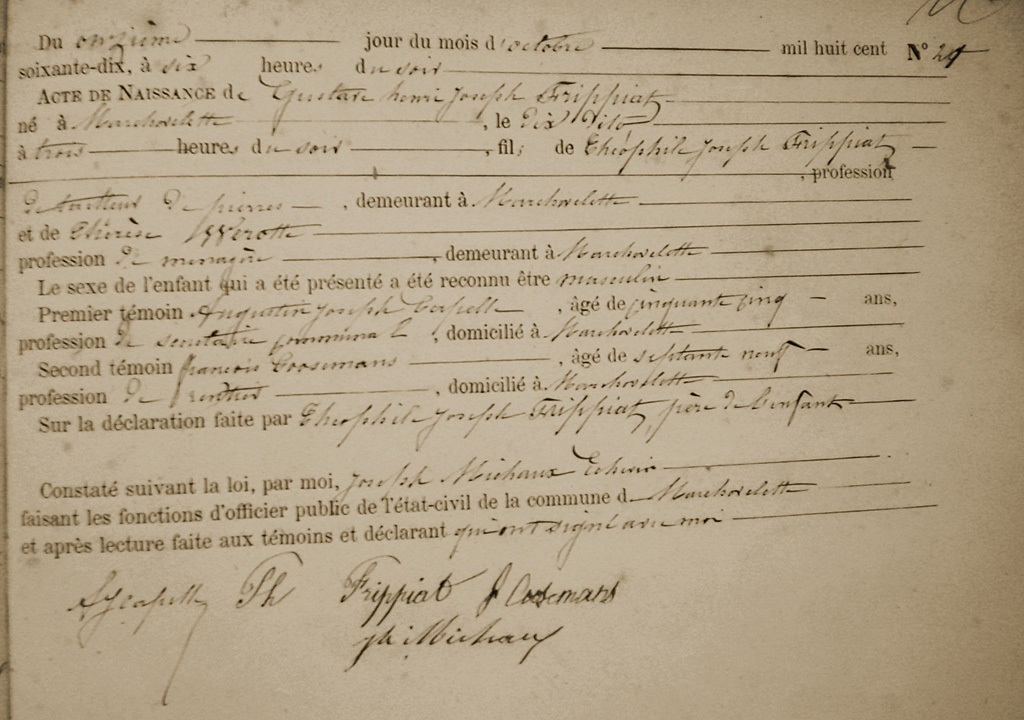 Du onzième jour du mois d'octobre mil huit cent N° 24
soixante-dix, à six heures du soir
ACTE DE NAISSANCE de Gustave henri Joseph Frippiat
né à Marchovelette, le dix dito
à trois heures du soir, fils de Théophile Joseph Frippiat
, profession
de tailleur de pierres, demeurant à Marchovelette
et de Thérèse Wérotte
profession de menagère, demeurant à Marchovelette
Le sexe de l'enfant qui a été présenté a été reconnu être masculin
Premier témoin Augustin Joseph Capelle, âgé de cinquante cinq ans,
profession de secrétaire communal, domicilié à Marchovelette
Second témoin françois Coosemans, âgé de septante neuf ans,
profession de rentier, domicilié à Marchovelette
Sur la déclaration faite par Théophile Joseph Frippiat, père de l'enfant
Constaté suivant la loi, par moi, Joseph Michaux Echevin
faisant les fonctions d'officier public de l'état-civil de la commune de Marchovelette
et après lecture faite aux témoins et déclarant qui ont signé avec moi
A J Capelle Th Frippiat f Coosemans
Michaux